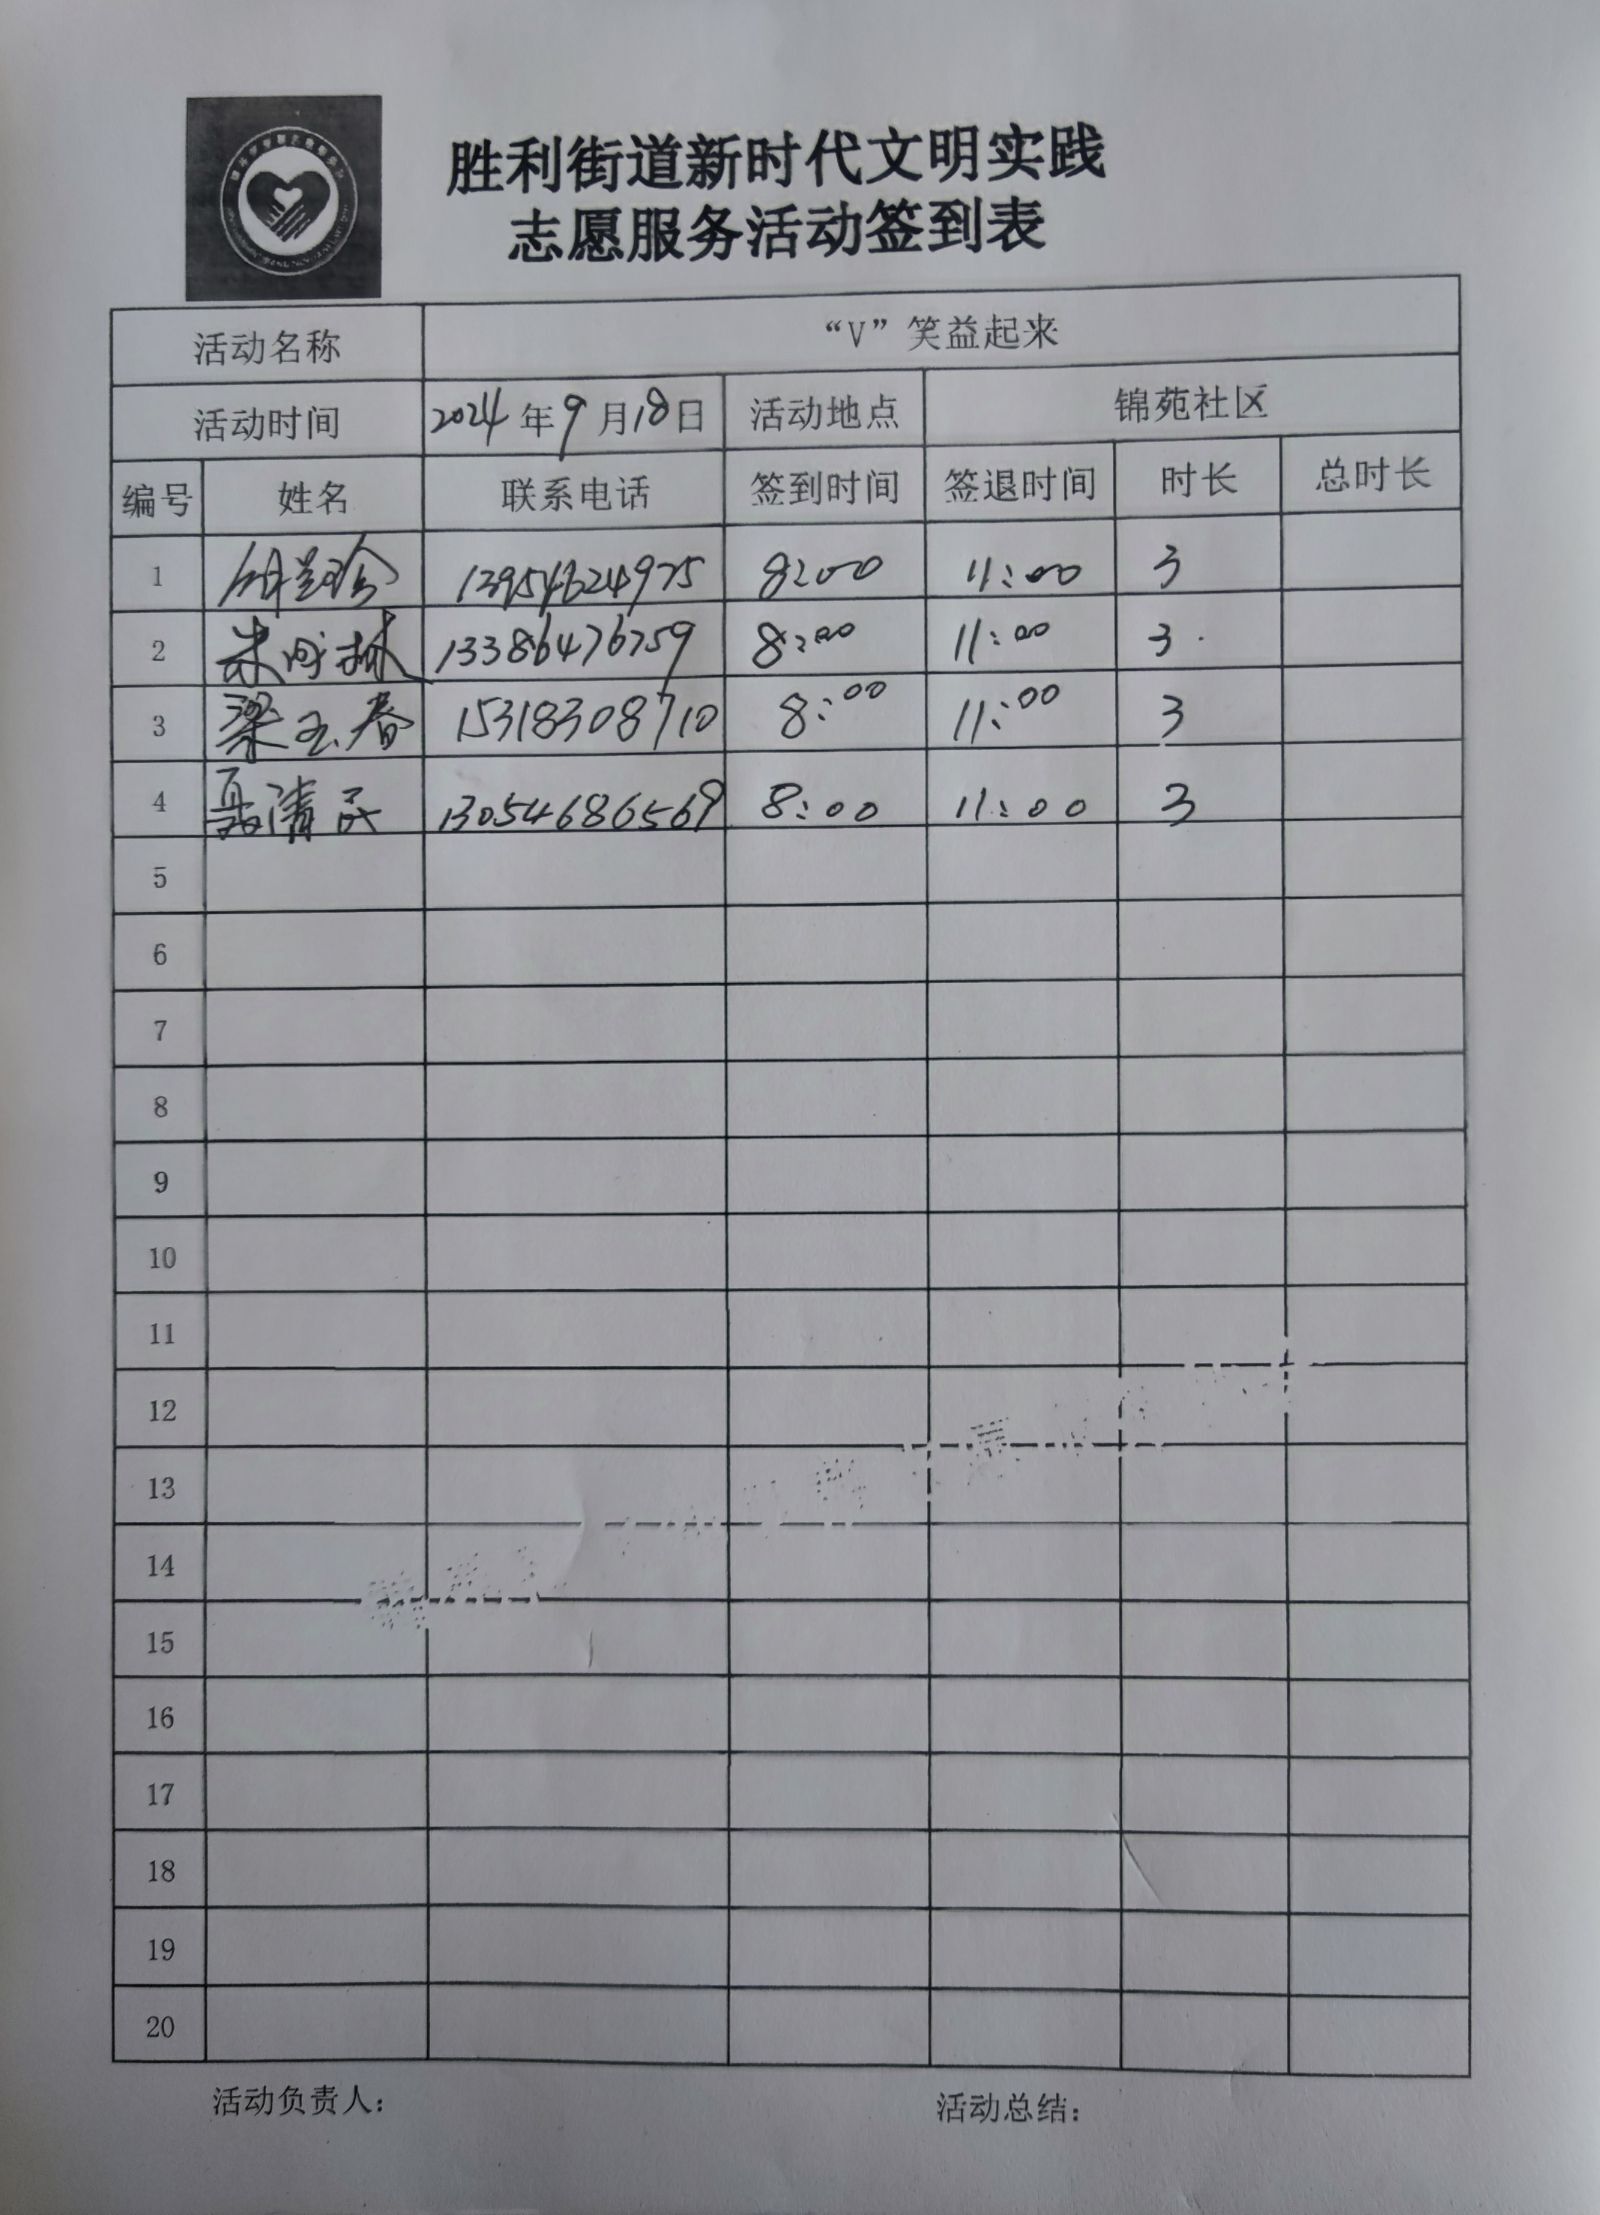 胜利街道新时代文明实践
志愿服务活动签到表
活动名称 “V”笑益起来
活动时间 2024年9月18日 活动地点 锦苑社区
编号 姓名 联系电话 签到时间 签退时间 时长 总时长
1 13954624975 8:00 11:00 3
2 13386476759 8:00 11:00 3
3 梁玉春 15318308710 8:00 11:00 3
4 聂清民 13054686569 8:00 11:00 3
5
6
7
8
9
10
11
12
13
14
15
16
17
18
19
20
活动负责人： 活动总结：